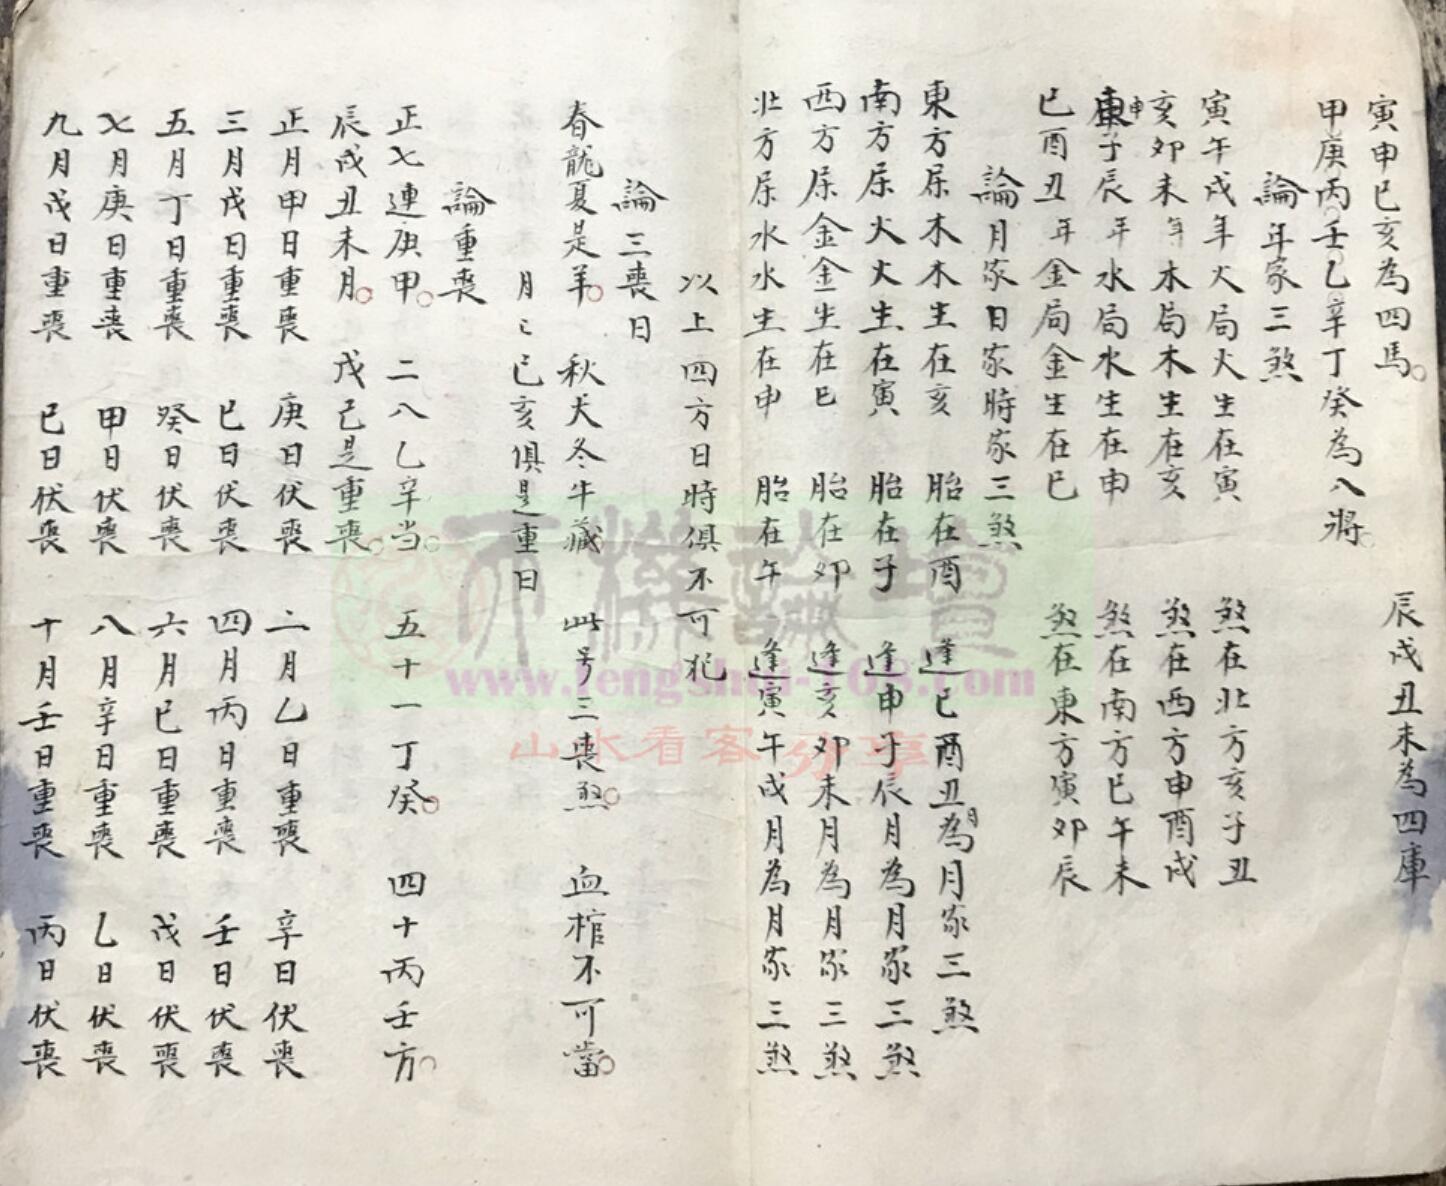 寅申巳亥為四馬。 辰戌丑未為四庫
甲庚丙壬乙辛丁癸為八將。
論年家三煞
寅午戌年火局火生在寅 煞在北方亥子丑
亥卯未年木局木生在亥 煞在西方申酉戌
申子辰年水局水生在申 煞在南方巳午未
巳酉丑年金局金生在巳 煞在東方寅卯辰
論月家日家時家三煞
東方屬木木生在亥 胎在酉 逢巳酉丑月為月家三煞
南方屬火火生在寅 胎在子 逢申子辰月為月家三煞
西方屬金金生在巳 胎在卯 逢亥卯未月為月家三煞
北方屬水水生在申 胎在午 逢寅午戌月為月家三煞
以上四方日時俱不可犯
論三喪日
春龍夏是羊。 秋犬冬牛藏 此号三喪煞。 血棺不可當。
月々巳亥俱是重日
論重喪
正七連庚甲。 二八乙辛当。 五十一丁癸。 四十丙壬方。
辰戌丑未月。 戊己是重喪。
正月甲日重喪 庚日伏喪 二月乙日重喪 辛日伏喪
三月戊日重喪 巳日伏喪 四月丙日重喪 壬日伏喪
五月丁日重喪 癸日伏喪 六月巳日重喪 戊日伏喪
七月庚日重喪 甲日伏喪 八月辛日重喪 乙日伏喪
九月戊日重喪 巳日伏喪 十月壬日重喪 丙日伏喪
www.fengshui-168.com
山水看客分享